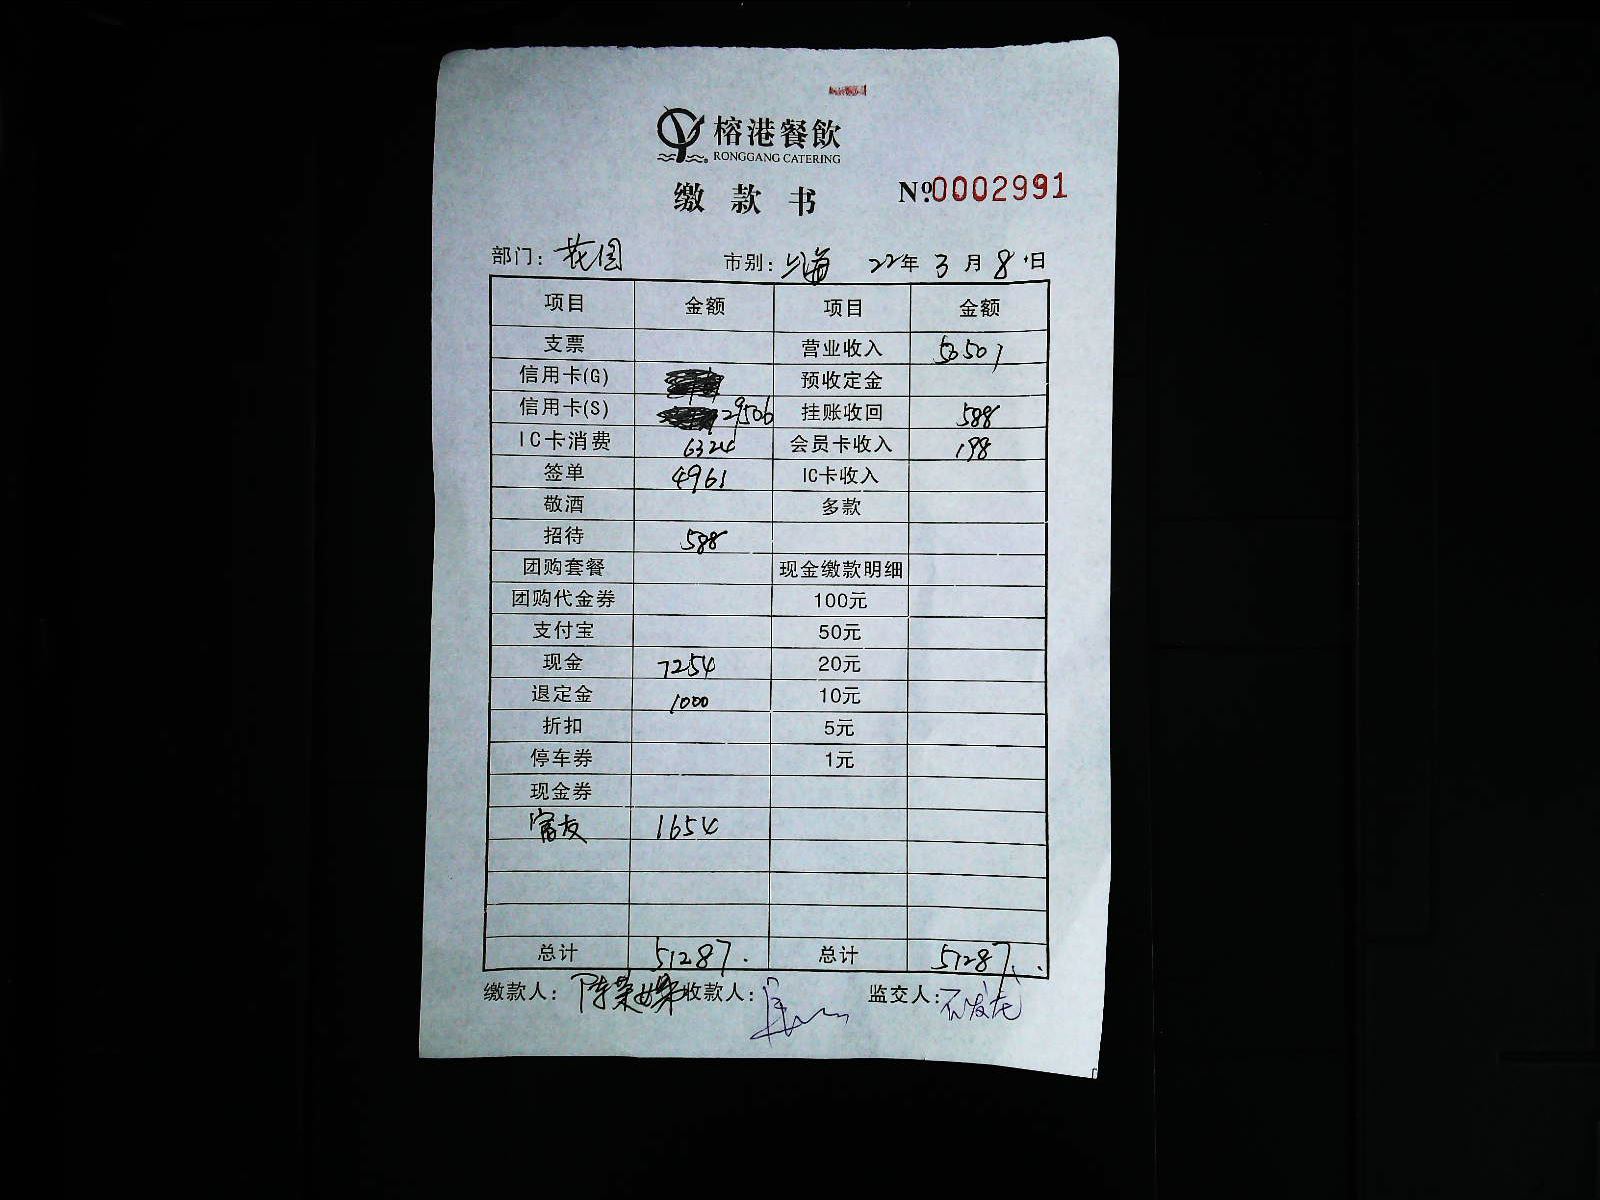 榕港餐飲
RONGGANG CATERING
缴款书 №0002991
部门: 花园 市别: 上海 22年 3月 8日
项目 金额 项目 金额
支票 营业收入 50501
信用卡(G) 预收定金
信用卡(S) 29506 挂账收回 588
IC卡消费 6324 会员卡收入 198
签单 4961 IC卡收入
敬酒 多款
招待 588
团购套餐 现金缴款明细
团购代金券 100元
支付宝 50元
现金 7254 20元
退定金 1000 10元
折扣 5元
停车券 1元
现金券
富友 1654
总计 51287. 总计 51287.
缴款人: 收款人: 监交人: